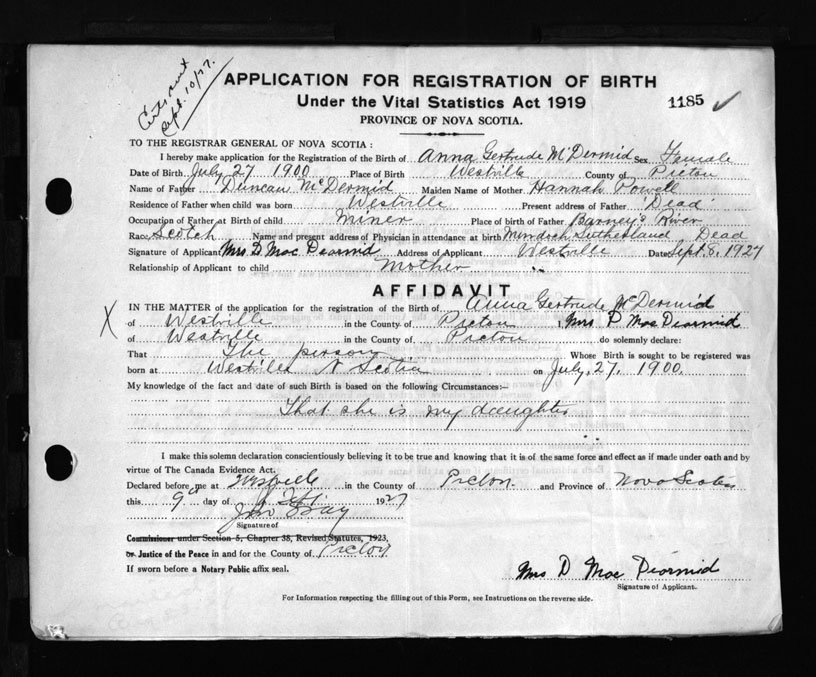 Cert. sent
Sept. 10/27.
APPLICATION FOR REGISTRATION OF BIRTH
Under the Vital Statistics Act 1919
1185 ✓
PROVINCE OF NOVA SCOTIA.
TO THE REGISTRAR GENERAL OF NOVA SCOTIA :
I hereby make application for the Registration of the Birth of Anna Gertrude McDermid Sex Female
Date of Birth July 27 1900 Place of Birth Westville County of Pictou
Name of Father Duncan McDermid Maiden Name of Mother Hannah Powell
Residence of Father when child was born Westville Present address of Father 'Dead'
Occupation of Father at Birth of child miner Place of birth of Father Barney's River
Race Scotch Name and present address of Physician in attendance at birth Sutherland Dead
Signature of Applicant Mrs D Mac Diarmid Address of Applicant Westville Date Sept 8, 1927
Relationship of Applicant to child mother
AFFIDAVIT
X
IN THE MATTER of the application for the registration of the Birth of Anna Gertrude McDermid
of Westville in the County of Pictou I, Mrs D Mac Diarmid
of Westville in the County of Pictou do solemnly declare:
That the person Whose Birth is sought to be registered was
born at Westville N Scotia on July, 27, 1900.
My knowledge of the fact and date of such Birth is based on the following Circumstances:—
That she is my daughter
I make this solemn declaration conscientiously believing it to be true and knowing that it is of the same force and effect as if made under oath and by
virtue of The Canada Evidence Act.
Declared before me at Westville in the County of Pictou and Province of Nova Scotia
this 9th day of Sept 1927
Gray
Signature of
Commissioner under Section 5, Chapter 38, Revised Statutes, 1923,
or Justice of the Peace in and for the County of Pictou
If sworn before a Notary Public affix seal.
Mrs D Mac Diarmid
Signature of Applicant.
For Information respecting the filling out of this Form, see Instructions on the reverse side.